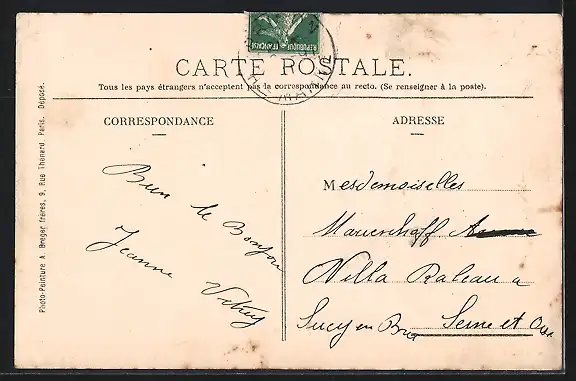 REPUBLIQUE FRANÇAISE
CARTE POSTALE.
Tous les pays étrangers n'acceptent pas la correspondance au recto. (Se renseigner à la poste).
CORRESPONDANCE
Bien le Bonjour
Jeanne
ADRESSE
Mesdemoiselles
Villa
Sucy en Brie Seine et Oise
Photo-Peinture A. Breger frères, 9, Rue Thénard, Paris. Déposé.